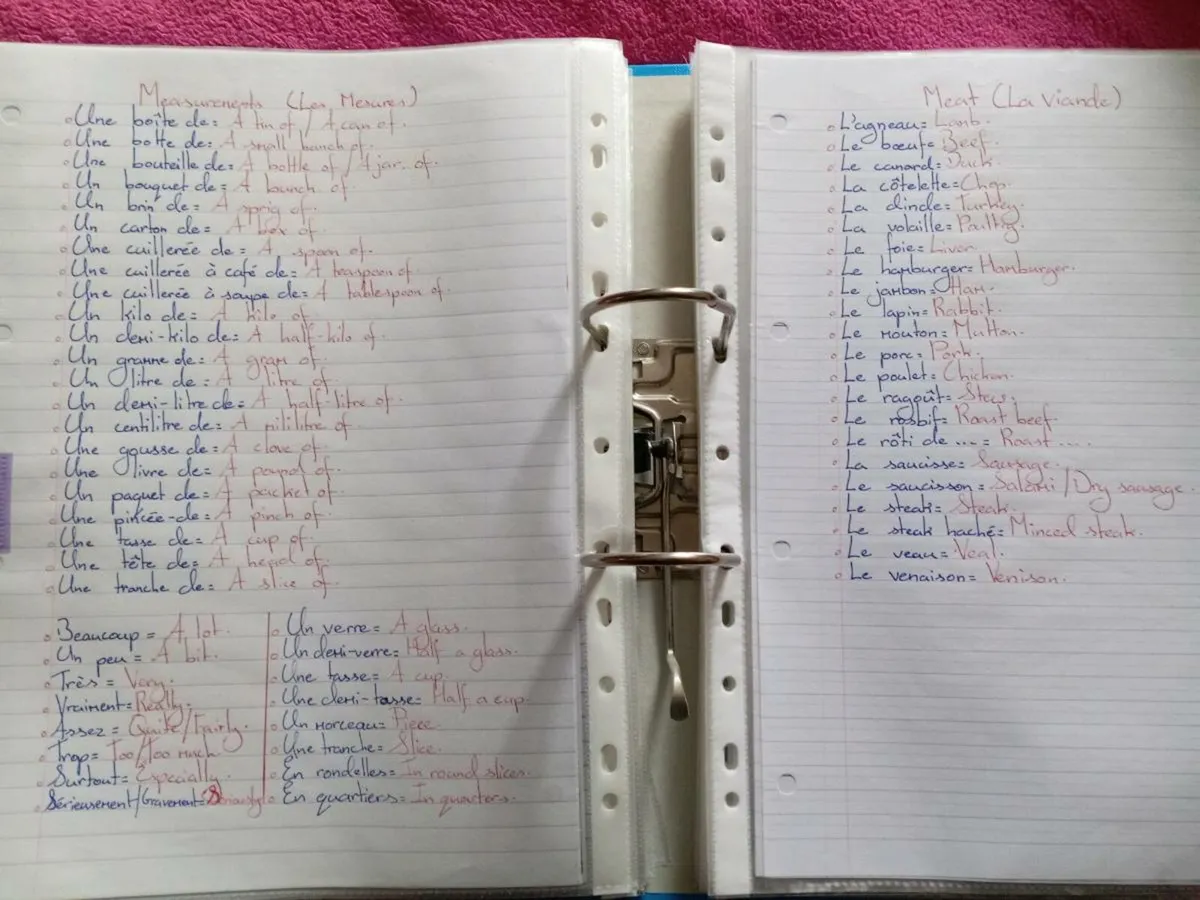 Measurements (Les Mesures)
Une boîte de= A tin of / A can of.
Une botte de= A small bunch of.
Une bouteille de= A bottle of / A jar of.
Un bouquet de= A bunch of.
Un brin de= A sprig of.
Un carton de= A box of.
Une cuillerée de= A spoon of.
Une cuillerée à café de= A teaspoon of.
Une cuillerée à soupe de= A tablespoon of.
Un kilo de= A kilo of.
Un demi-kilo de= A half-kilo of.
Un gramme de= A gram of.
Un litre de= A litre of.
Un demi-litre de= A half-litre of.
Un centilitre de= A of.
Une gousse de= A clove of.
Une livre de= A of.
Un paquet de= A packet of.
Une pincée-de= A pinch of.
Une tasse de= A cup of.
Une tête de= A of.
Une tranche de= A slice of.
Beaucoup = A lot.
Un peu= A bit.
Très= Very.
Vraiment= Really.
Assez = Quite/Fairly.
Trop= Too/Too much
Surtout= Especially.
Sérieusement/Gravement= Seriously
Un verre= A glass.
Un demi-verre= Half a glass.
Une tasse= A cup.
Une demi-tasse= Half a cup.
Un morceau= Piece.
Une tranche= Slice.
En rondelles= In round slices.
En quartiers= In quarters.
Meat (La viande)
L'agneau= Lamb.
Le bœuf= Beef.
Le canard= Duck.
La côtelette= Chop.
La dinde= Turkey.
La volaille= Poultry.
Le foie= Liver.
Le hamburger= Hamburger.
Le jambon= Ham.
Le lapin= Rabbit.
Le mouton= Mutton.
Le porc= Pork.
Le poulet= Chicken.
Le ragoût= Stew.
Le rosbif= Roast beef.
Le rôti de ....= Roast ....
La saucisse= Sausage.
Le saucisson= Salami / Dry sausage.
Le steak= Steak.
Le steak haché= Minced steak.
Le veau= Veal.
Le venaison= Venison.